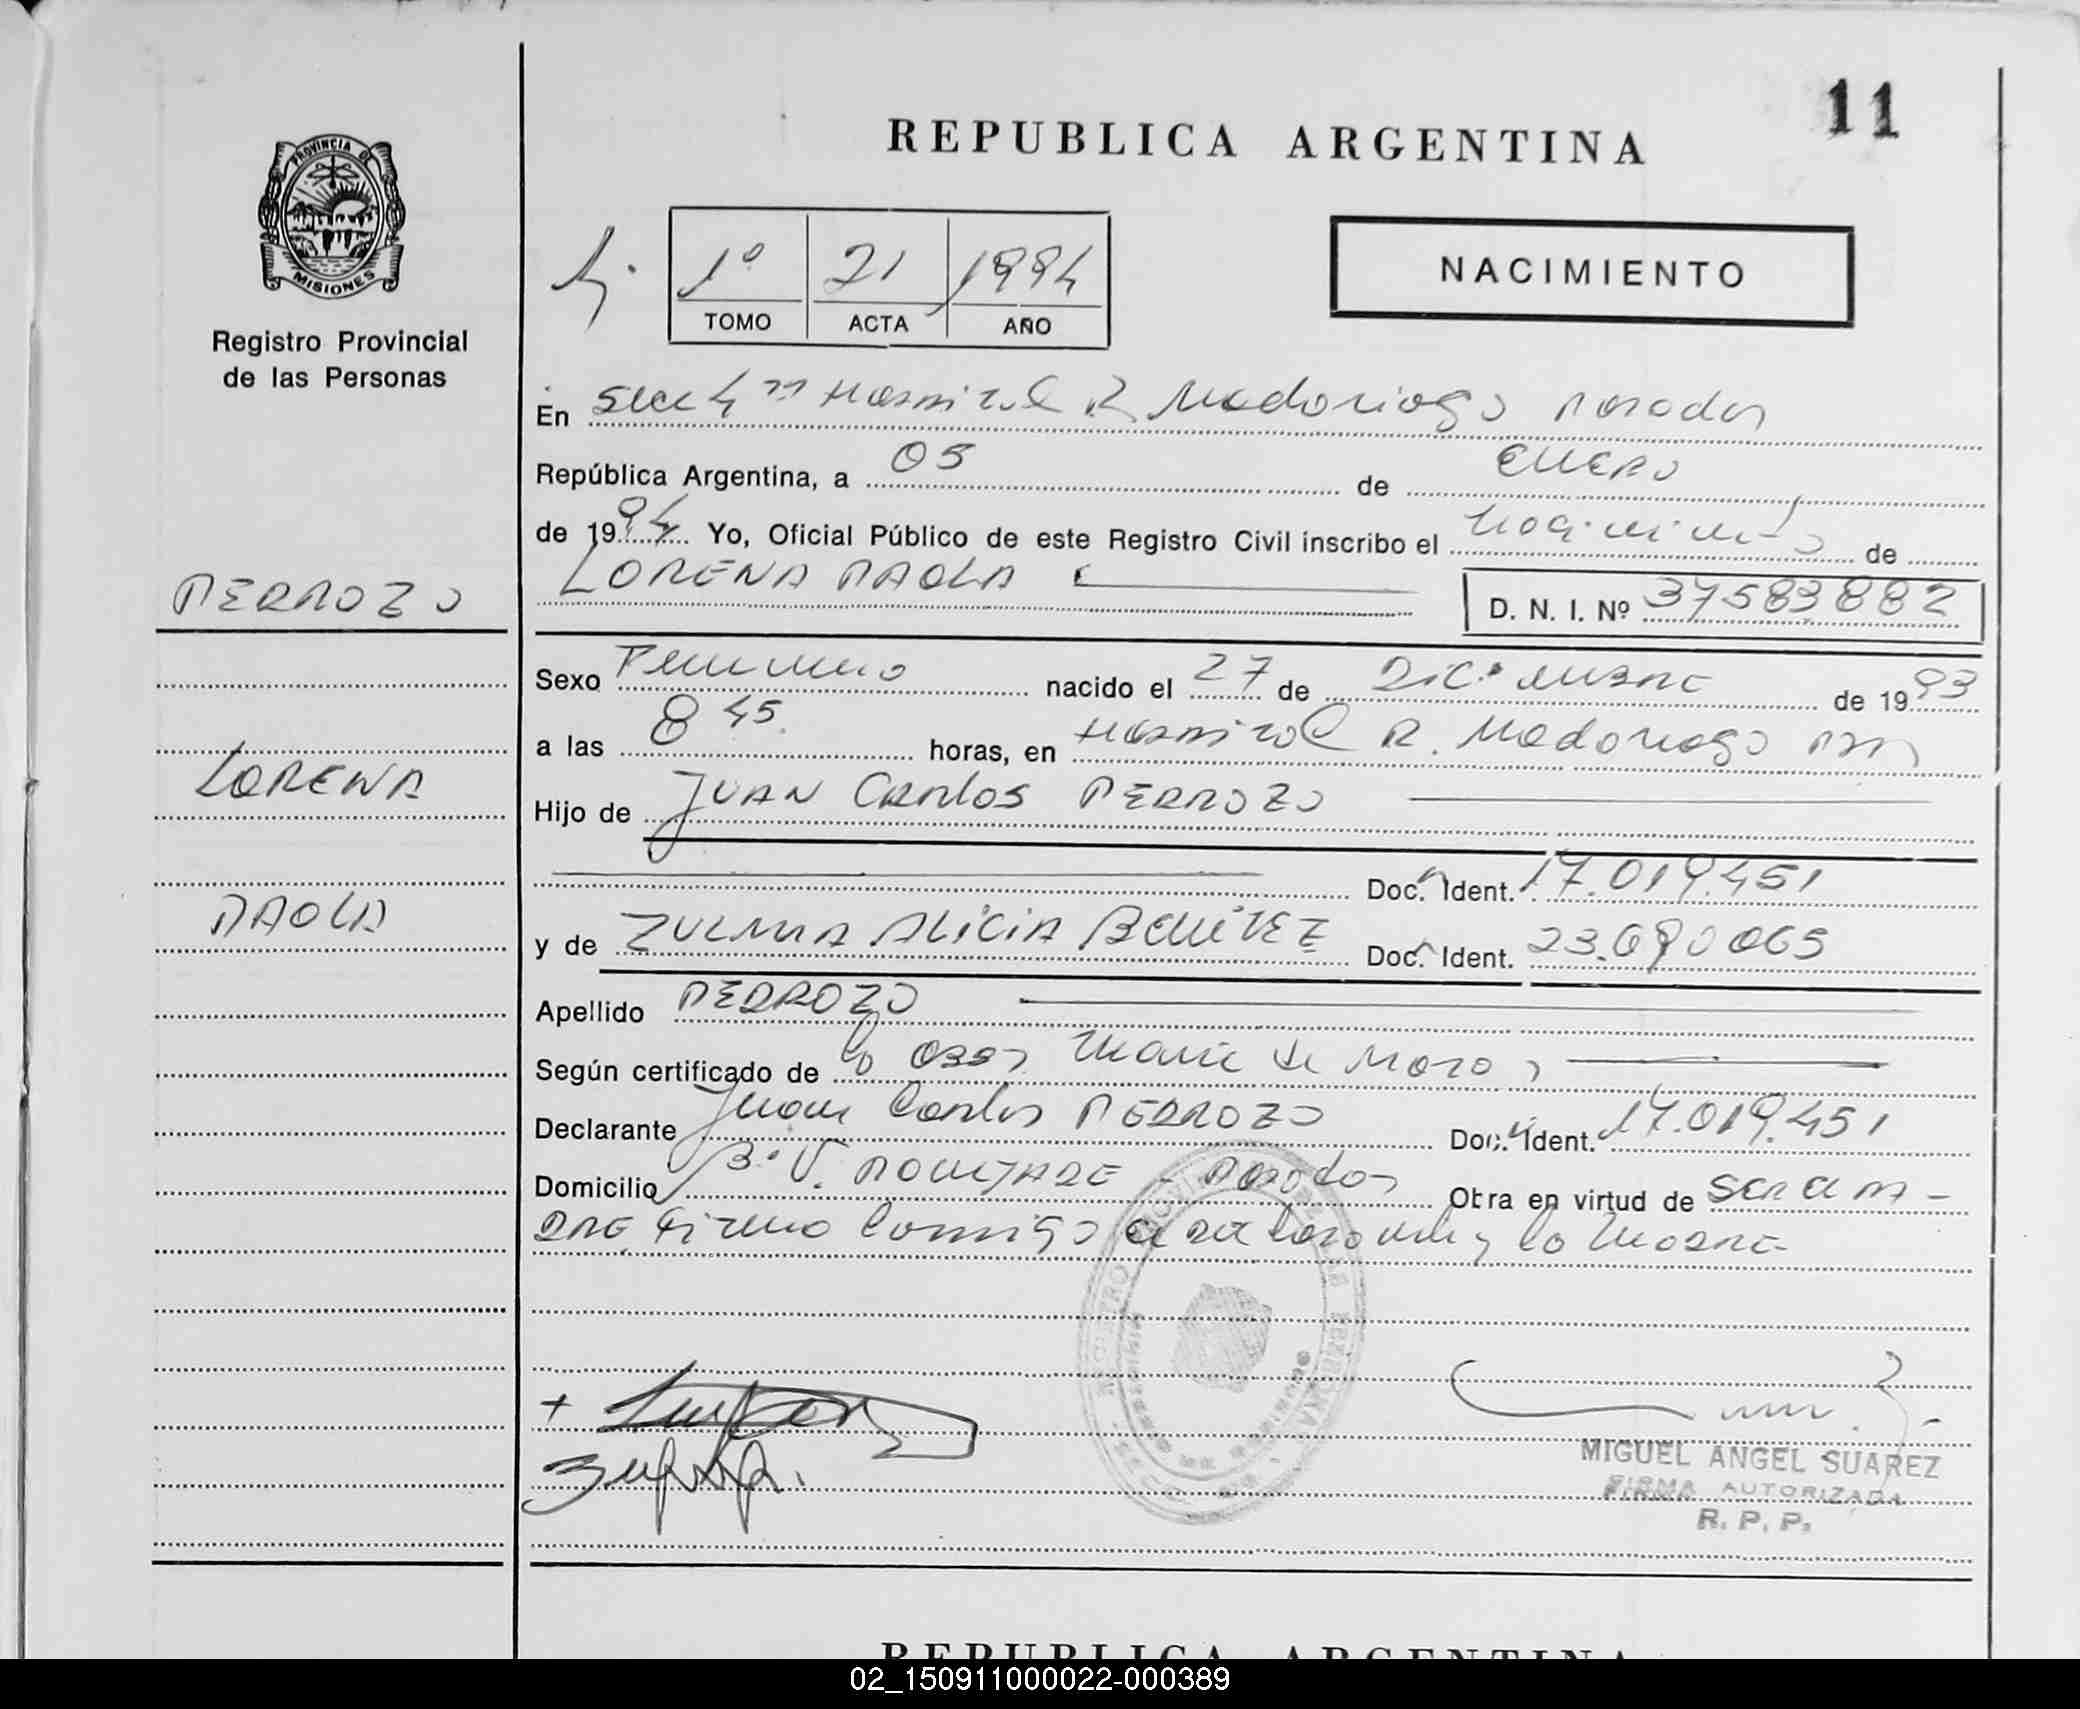 11
REPUBLICA ARGENTINA
PROVINCIA DE
MISIONES
Registro Provincial
de las Personas
1º 21 1994
TOMO ACTA AÑO
NACIMIENTO
En Secc Hospital R. Madariaga Posadas
República Argentina, a 05 de ENERO
de 1994 Yo, Oficial Público de este Registro Civil inscribo el nacimiento de
LORENA PAOLA D. N. I. Nº 37583882
PEDROZO
LORENA
PAOLA
Sexo Femenino nacido el 27 de Diciembre de 1993
a las 8 45 horas, en Hospital R. Madariaga
Hijo de JUAN Carlos PEDROZO
Doc. Ident. 17.019.451
y de ZULMA ALICIA BENITEZ Doc. Ident. 23.690065
Apellido PEDROZO
Según certificado de la Obst. Maria de
Declarante Juan Carlos PEDROZO Doc. Ident. 17.019.451
Domicilio Bº V. POUJADE - Posadas Otra en virtud de ser el pa-
dre, firma conmigo el declarante y la madre
MIGUEL ANGEL SUAREZ
FIRMA AUTORIZADA
R. P. P.
REPUBLICA ARGENTINA
02_150911000022-000389